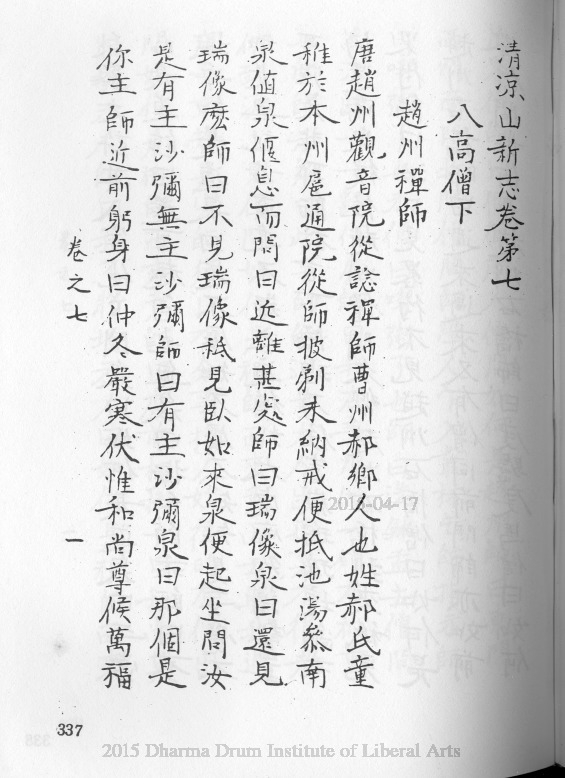 清凉山新志卷第七
八高僧下
趙州禪師
唐趙州觀音院從諗禪師曹州郝鄉人也姓郝氏童
稚於本州扈通院從師披剃未納戒便抵池湯叅南
泉值泉偃息而問曰近離甚處師曰瑞像泉曰還見
瑞像麽師曰不見瑞像秪見臥如來泉便起坐問汝
是有主沙彌無主沙彌師曰有主沙彌泉曰那個是
你主師近前躬身曰仲冬嚴寒伏惟和尚尊候萬福
卷之七
一
337
2016-04-17
2015 Dharma Drum Institute of Liberal Arts